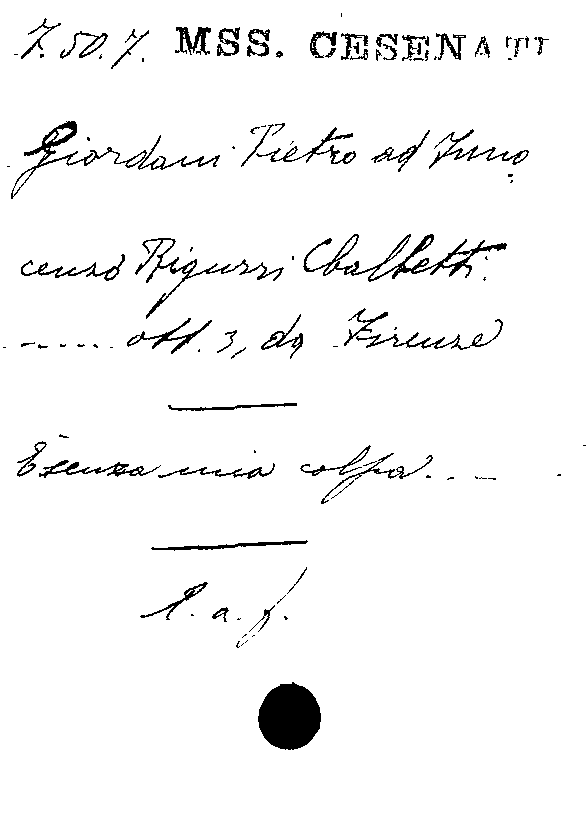 7.50.7. MSS. CESENATI
Giordani Pietro ad Inno
cenzo Rigurzi
..... ott. 3, da Firenze
È senza mia colpa....
l. a. f.